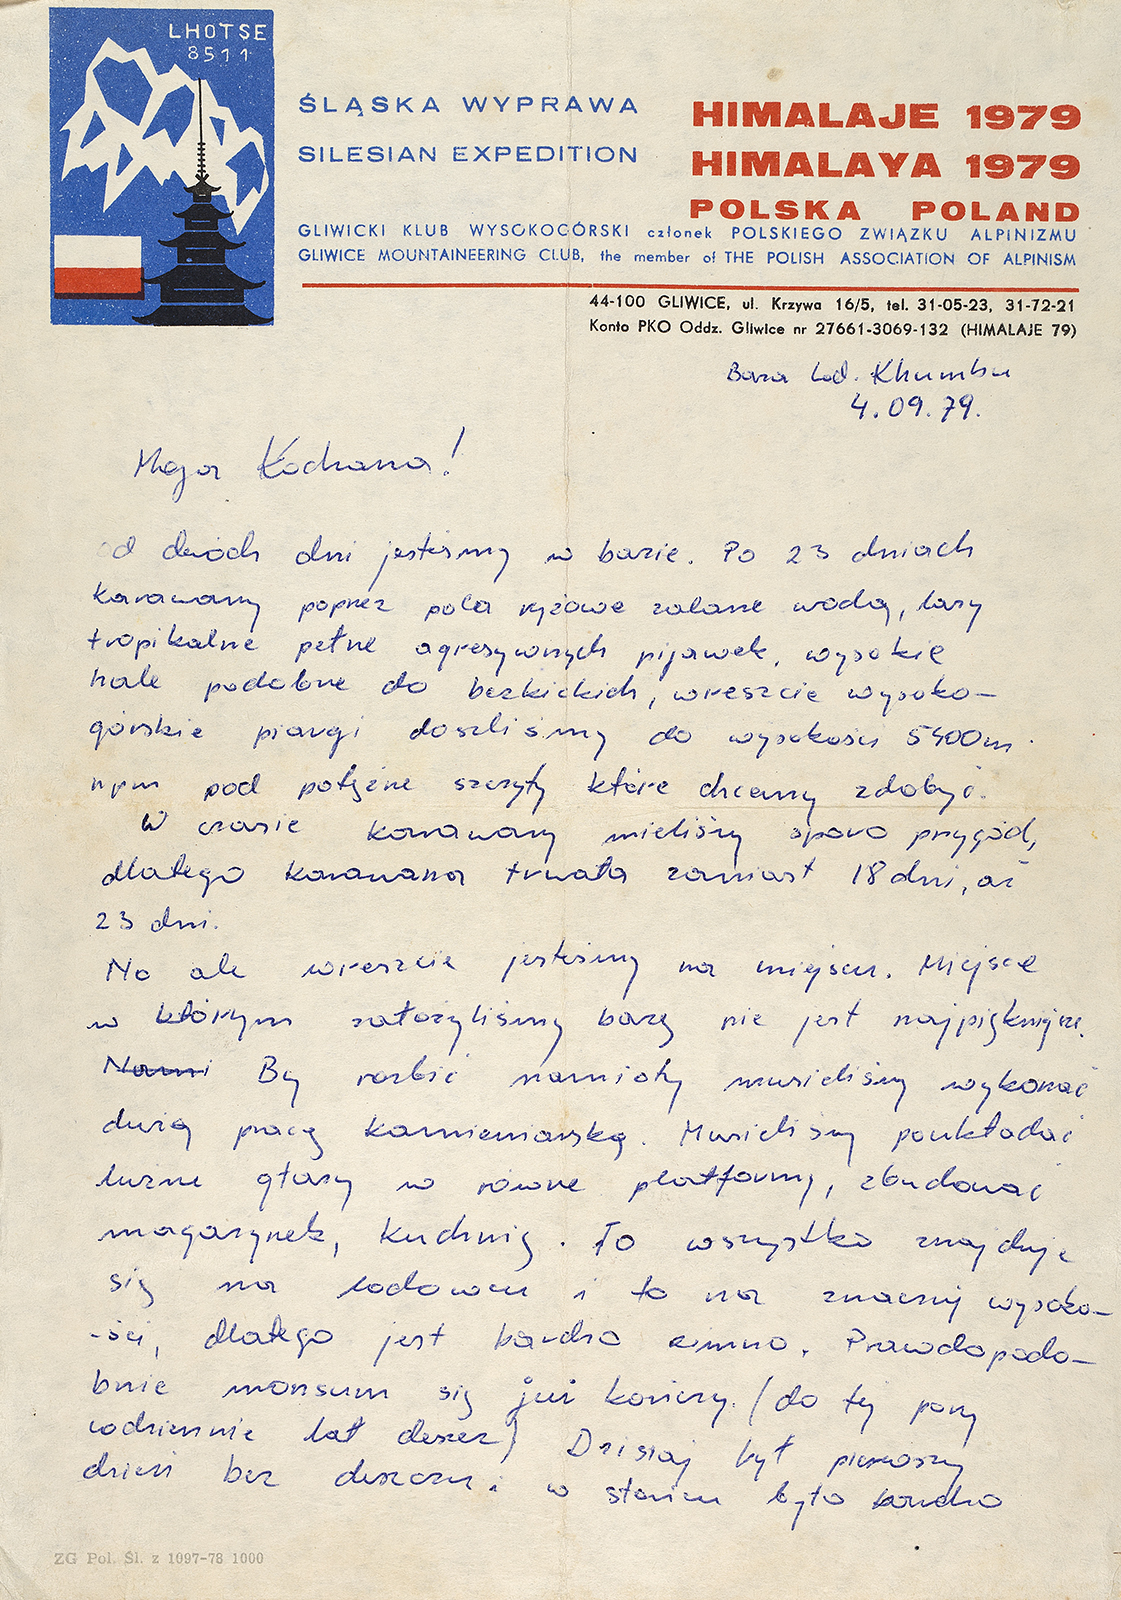 LHOTSE
8511
ŚLĄSKA WYPRAWA
SILESIAN EXPEDITION
HIMALAJE 1979
HIMALAYA 1979
POLSKA POLAND
GLIWICKI KLUB WYSOKOGÓRSKI członek POLSKIEGO ZWIĄZKU ALPINIZMU
GLIWICE MOUNTAINEERING CLUB, the member of THE POLISH ASSOCIATION OF ALPINISM
44-100 GLIWICE, ul. Krzywa 16/5, tel. 31-05-23, 31-72-21
Konto PKO Oddz. Gliwice nr 27661-3069-132 (HIMALAJE 79)
Baza lod. Khumbu
4.09.79.
Moja Kochana!
od dwóch dni jesteśmy w bazie. Po 23 dniach
karawany poprzez pola ryżowe zalane wodą, lasy
tropikalne pełne agresywnych pijawek, wysokie
hale podobne do beskidzkich, wreszcie wysoko-
górskie piargi doszliśmy do wysokości 5400m
npm pod potężne szczyty które chcemy zdobyć.
W czasie karawany mieliśmy sporo przygód,
dlatego karawana trwała zamiast 18 dni, aż
23 dni.
No ale wreszcie jesteśmy na miejscu. Miejsce
w którym założyliśmy bazę nie jest najpiękniejsze.
Nami By rozbić namioty musieliśmy wykonać
dużą pracę kamieniarską. Musieliśmy poukładać
luźne głazy w równe platformy, zbudować
magazynek, kuchnię. To wszystko znajduje
się na lodowcu i to na znacznej wysoko-
-ści, dlatego jest bardzo zimno. Prawdopodo-
bnie monsum się już kończy. (do tej pory
codziennie lał deszcz) Dzisiaj był pierwszy
dzień bez deszczu i w słońcu było bardzo
ZG Pol. Śl. z 1097-78 1000